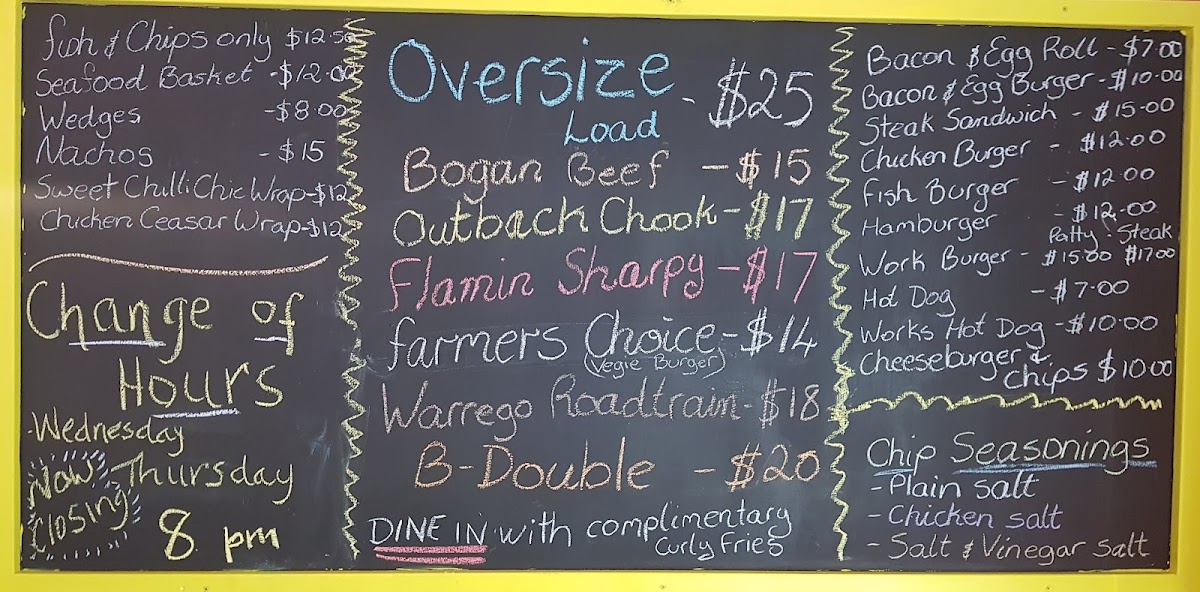 Fish & Chips only $12.50
Seafood Basket - $12.00
Wedges - $8.00
Nachos - $15
Sweet Chilli Chic Wrap - $12
Chicken Ceasar Wrap - $12
Change of
Hours
- Wednesday
Thursday
Now
Closing
8 pm
Oversize
Load - $25
Bogan Beef - $15
Outback Chook - $17
Flamin Sharpy - $17
Farmers Choice - $14
(Vegie Burger)
Warrego Roadtrain - $18
B-Double - $20
DINE IN with complimentary
Curly Fries
Bacon & Egg Roll - $7.00
Bacon & Egg Burger - $10.00
Steak Sandwich - $15.00
Chicken Burger - $12.00
Fish Burger - $12.00
Hamburger - $12.00
Patty : Steak
Work Burger - $15.00 $17.00
Hot Dog - $7.00
Works Hot Dog - $10.00
Cheeseburger &
Chips $10.00
Chip Seasonings
- Plain salt
- Chicken salt
- Salt & Vinegar salt